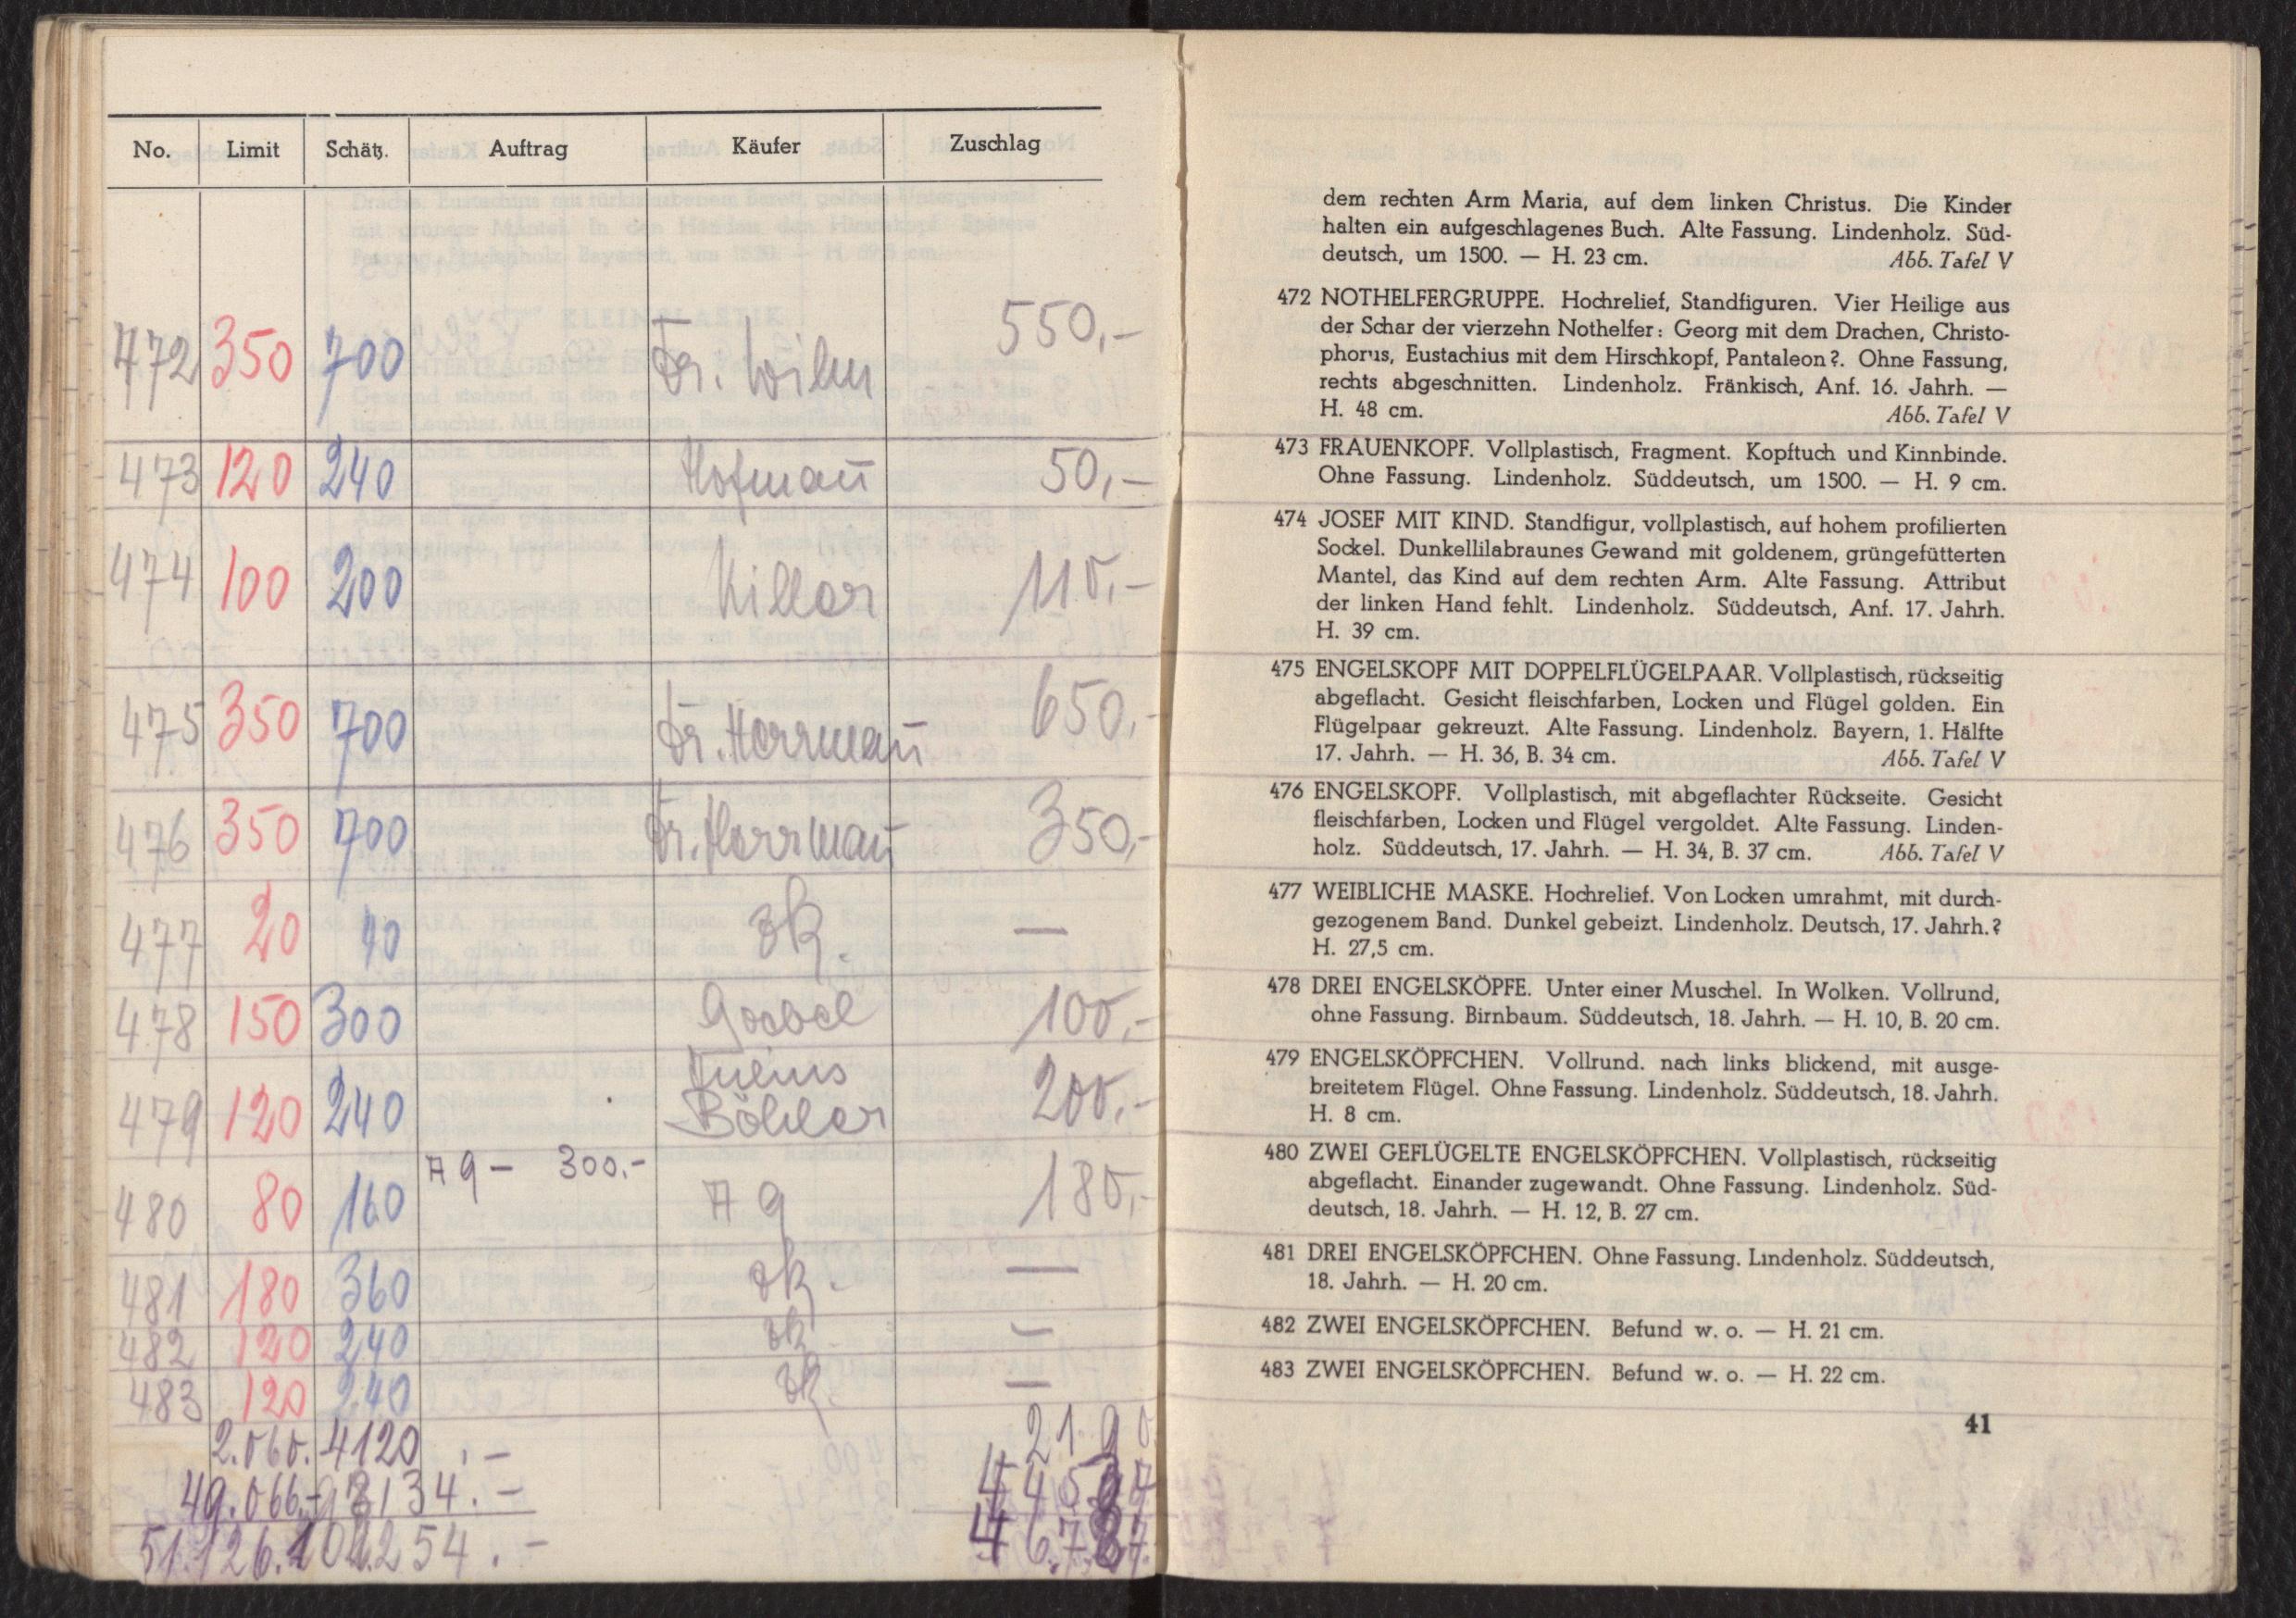 No. Limit Schätz. Auftrag Käufer Zuschlag
472 350 700 Dr. Wilm 550,-
473 120 240 Hofmañ 50,-
474 100 200 Killer 110,-
475 350 700 Dr. Herrmañ 650,-
476 350 700 Dr. Herrmañ 350,-
477 20 40 zk. —
478 150 300 Goebel 100,-
Julius
479 120 240 Böhler 200,-
A 9 - 300.-
480 80 160 A 9 180,-
481 180 360 zk. —
482 120 240 zk. —
483 120 240 zk. —
2.060. 4120 . - 21.90
49.066.- 98134. -
51.126. 102254. -
dem rechten Arm Maria, auf dem linken Christus. Die Kinder
halten ein aufgeschlagenes Buch. Alte Fassung. Lindenholz. Süd-
deutsch, um 1500. — H. 23 cm. Abb. Tafel V
472 NOTHELFERGRUPPE. Hochrelief, Standfiguren. Vier Heilige aus
der Schar der vierzehn Nothelfer: Georg mit dem Drachen, Christo-
phorus, Eustachius mit dem Hirschkopf, Pantaleon?. Ohne Fassung,
rechts abgeschnitten. Lindenholz. Fränkisch, Anf. 16. Jahrh. —
H. 48 cm. Abb. Tafel V
473 FRAUENKOPF. Vollplastisch, Fragment. Kopftuch und Kinnbinde.
Ohne Fassung. Lindenholz. Süddeutsch, um 1500. — H. 9 cm.
474 JOSEF MIT KIND. Standfigur, vollplastisch, auf hohem profilierten
Sockel. Dunkellilabraunes Gewand mit goldenem, grüngefütterten
Mantel, das Kind auf dem rechten Arm. Alte Fassung. Attribut
der linken Hand fehlt. Lindenholz. Süddeutsch, Anf. 17. Jahrh.
H. 39 cm.
475 ENGELSKOPF MIT DOPPELFLÜGELPAAR. Vollplastisch, rückseitig
abgeflacht. Gesicht fleischfarben, Locken und Flügel golden. Ein
Flügelpaar gekreuzt. Alte Fassung. Lindenholz. Bayern, 1. Hälfte
17. Jahrh. — H. 36, B. 34 cm. Abb. Tafel V
476 ENGELSKOPF. Vollplastisch, mit abgeflachter Rückseite. Gesicht
fleischfarben, Locken und Flügel vergoldet. Alte Fassung. Linden-
holz. Süddeutsch, 17. Jahrh. — H. 34, B. 37 cm. Abb. Tafel V
477 WEIBLICHE MASKE. Hochrelief. Von Locken umrahmt, mit durch-
gezogenem Band. Dunkel gebeizt. Lindenholz. Deutsch, 17. Jahrh.?
H. 27,5 cm.
478 DREI ENGELSKÖPFE. Unter einer Muschel. In Wolken. Vollrund,
ohne Fassung. Birnbaum. Süddeutsch, 18. Jahrh. — H. 10, B. 20 cm.
479 ENGELSKÖPFCHEN. Vollrund. nach links blickend, mit ausge-
breitetem Flügel. Ohne Fassung. Lindenholz. Süddeutsch, 18. Jahrh.
H. 8 cm.
480 ZWEI GEFLÜGELTE ENGELSKÖPFCHEN. Vollplastisch, rückseitig
abgeflacht. Einander zugewandt. Ohne Fassung. Lindenholz. Süd-
deutsch, 18. Jahrh. — H. 12, B. 27 cm.
481 DREI ENGELSKÖPFCHEN. Ohne Fassung. Lindenholz. Süddeutsch,
18. Jahrh. — H. 20 cm.
482 ZWEI ENGELSKÖPFCHEN. Befund w. o. — H. 21 cm.
483 ZWEI ENGELSKÖPFCHEN. Befund w. o. — H. 22 cm.
41